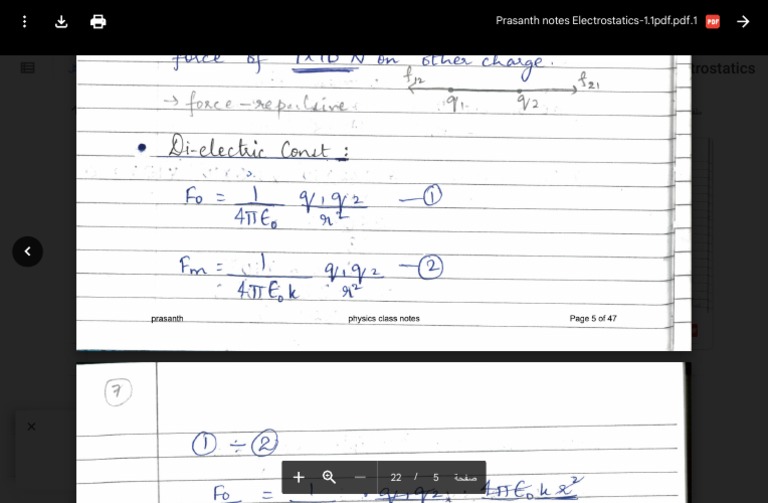 Prasanth notes Electrostatics-1.1pdf.pdf.1 PDF
rostatics
force of 1×10 N on other charge.
f12 f21
→ force - repulsive q1 q2
• Di-electric Const :
F0 = 1/4πϵ0 q1q2/r² —①
Fm = 1/4πϵ0k q1q2/r² —②
prasanth physics class notes Page 5 of 47
7
① ÷ ②
F0 = 1 · q1q2 · 4πϵ0kr²
22 / 5 صفحة